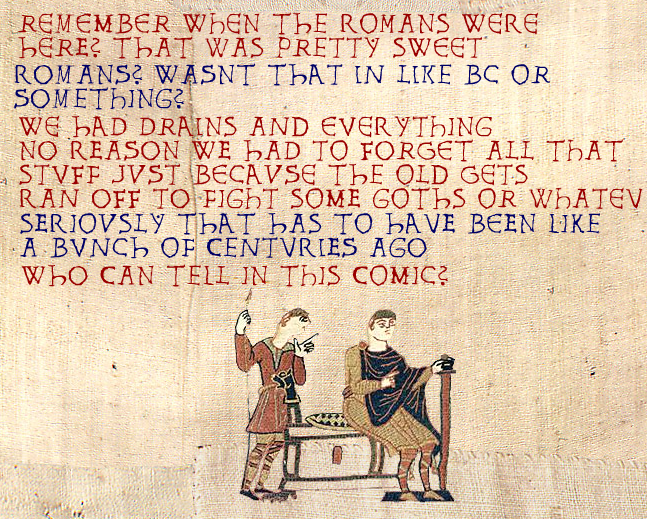 REMEMBER WHEN THE ROMANS WERE
HERE? THAT WAS PRETTY SWEET
ROMANS? WASNT THAT IN LIKE BC OR
SOMETHING?
WE HAD DRAINS AND EVERYTHING
NO REASON WE HAD TO FORGET ALL THAT
STVFF JVST BECAVSE THE OLD GETS
RAN OFF TO FIGHT SOME GOTHS OR WHATEV
SERIOVSLY THAT HAS TO HAVE BEEN LIKE
A BVNCH OF CENTVRIES AGO
WHO CAN TELL IN THIS COMIC?